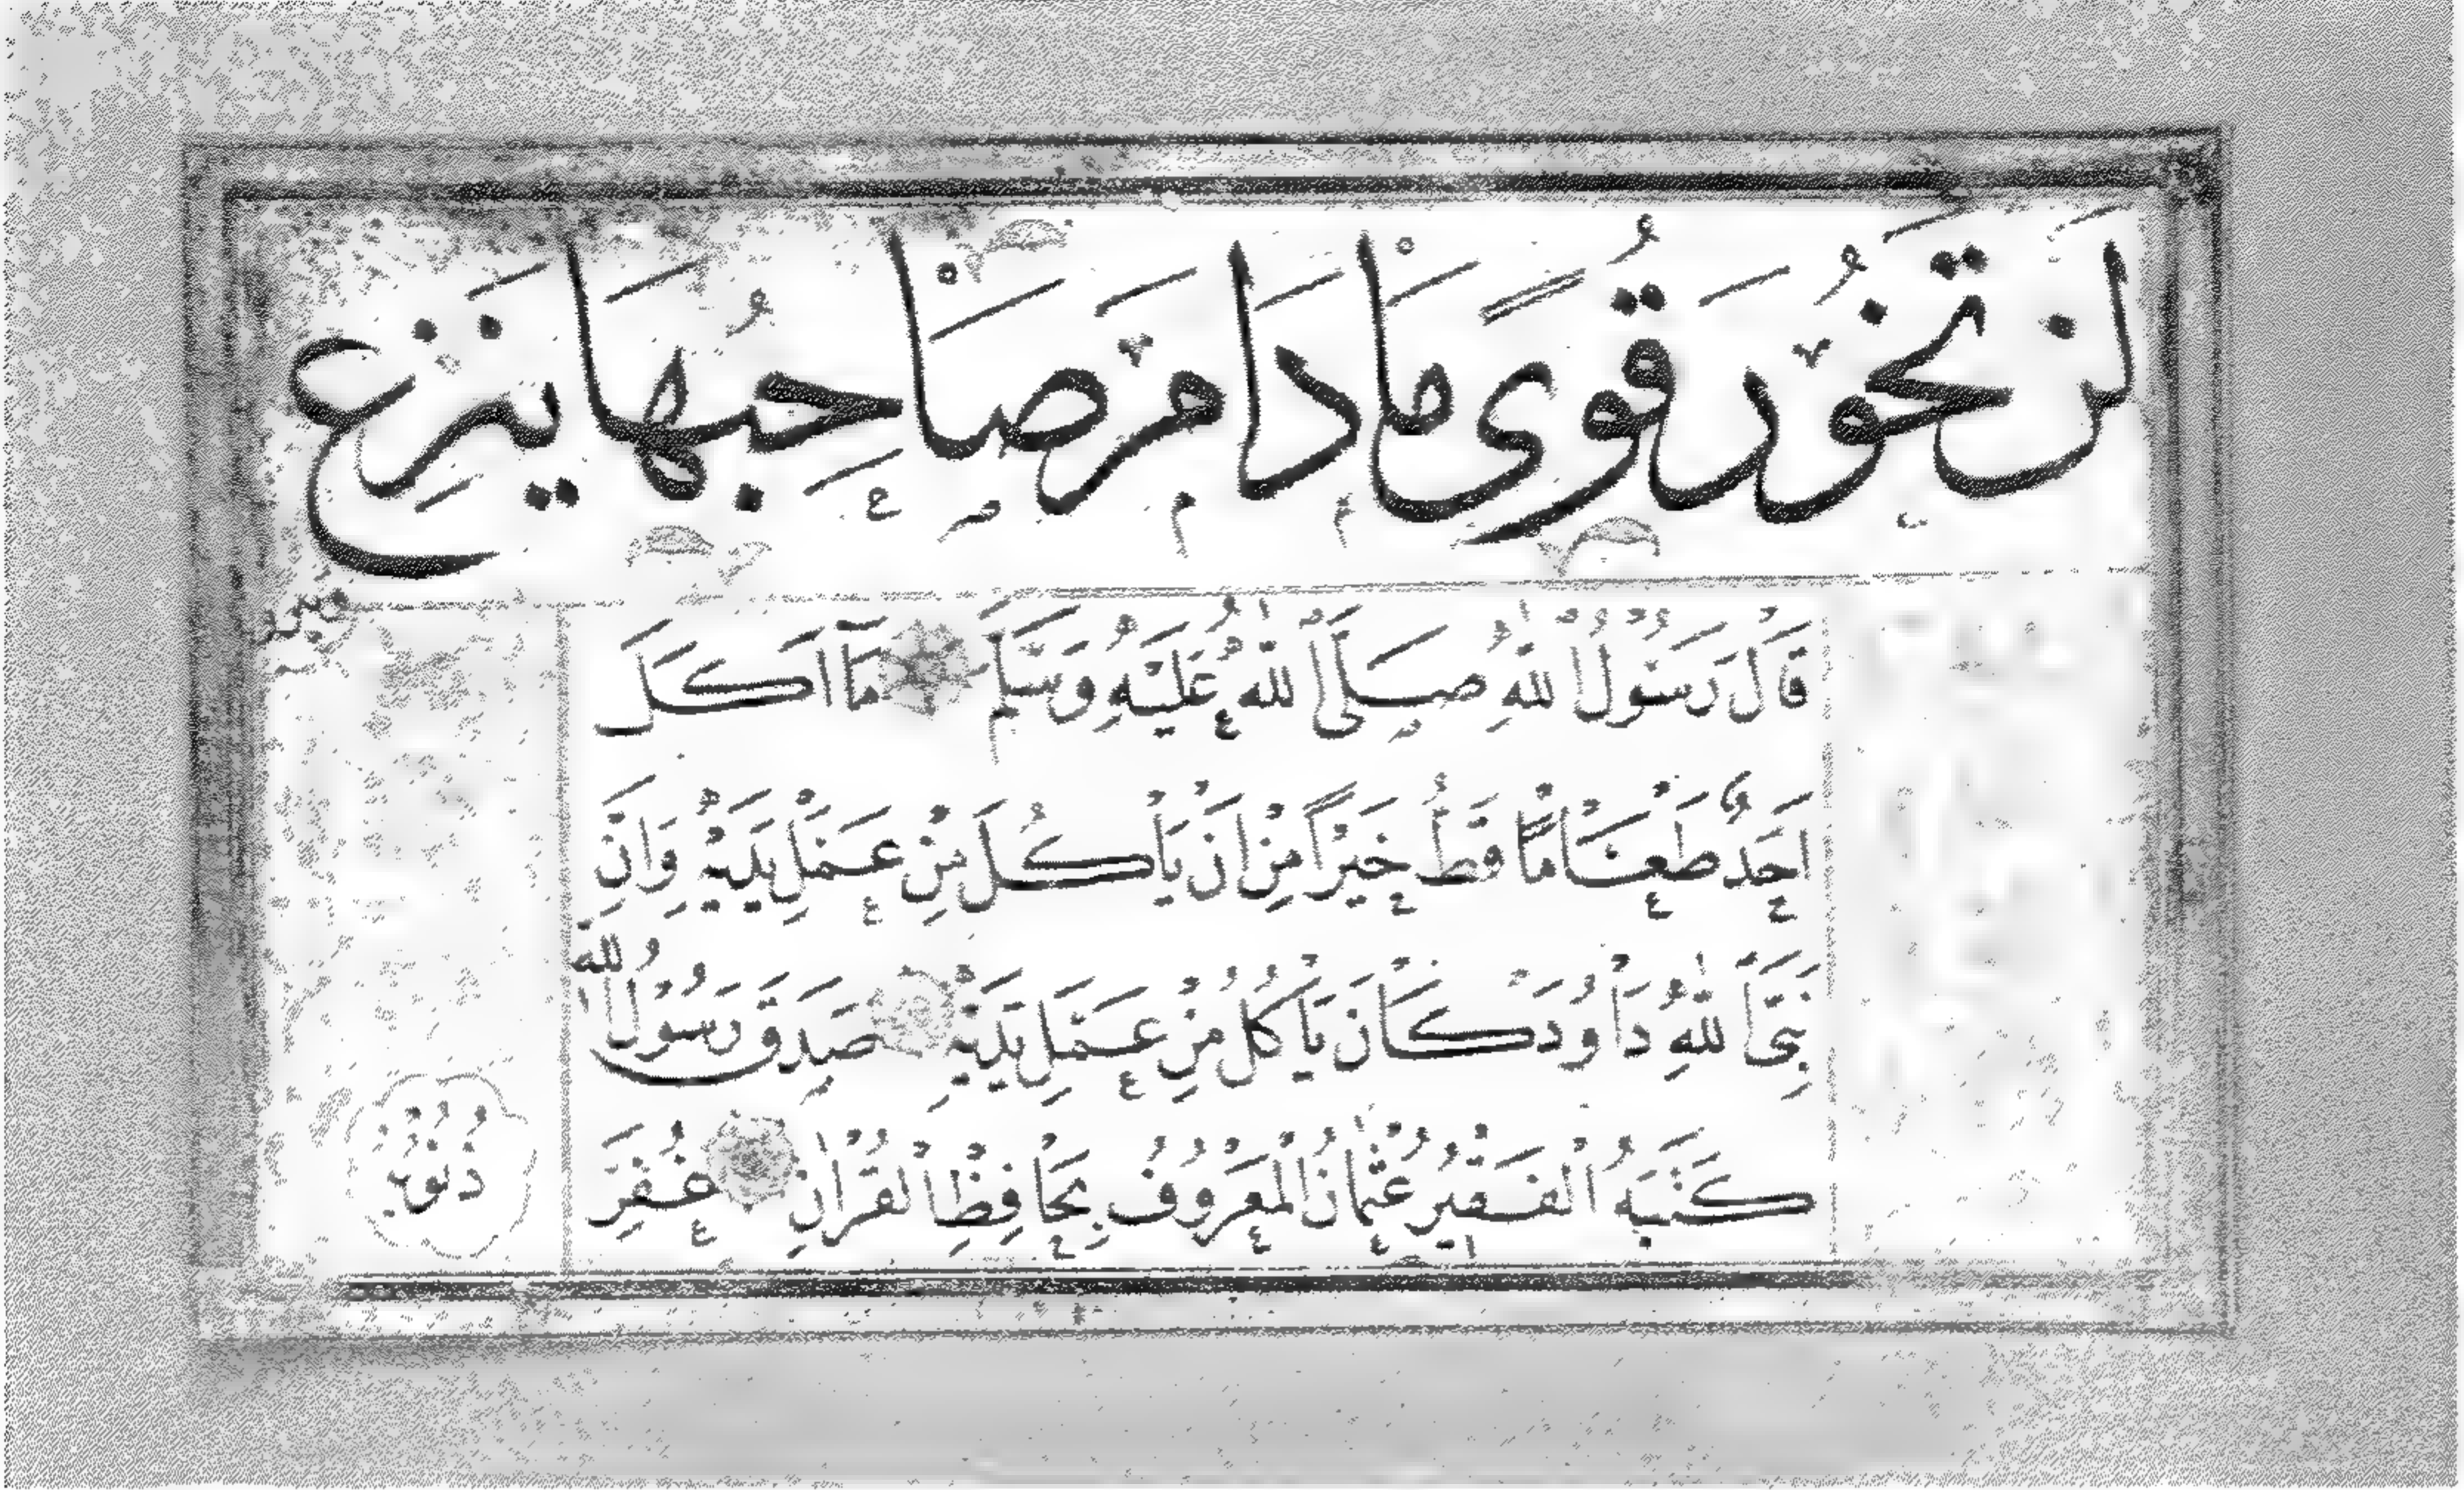 لن تخور قوى ما دام صاحبها ينزع
وينزو
قال رسول الله صلى الله عليه وسلم ما اكل
احد طعاما قط خيرا من ان ياكل من عمل يديه وان
نبي الله داود كان ياكل من عمل يديه صدق رسول الله
كتبه الفقير عثمان المعروف بحافظ القران غفر
ذنوبه